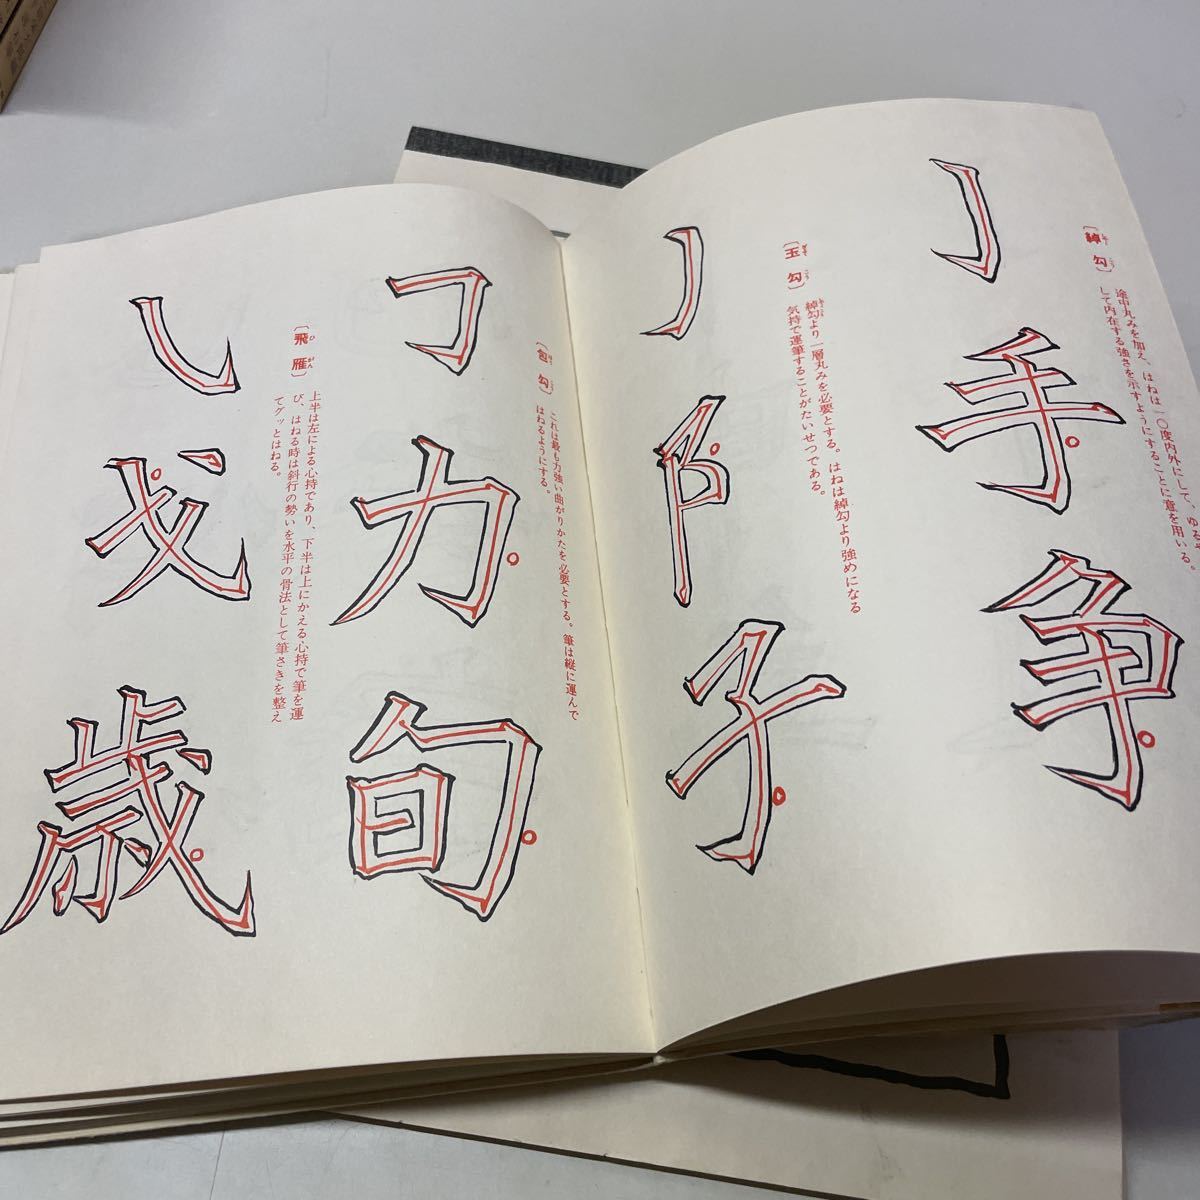 亅
手
争
〔綽勾〕
途中丸みを加え、はねは一〇度内外にして、ゆるや
して内在する強さを示すようにすることに意を用いる。
亅
阝
子
〔玉勾〕
綽勾より一層丸みを必要とする。はねは綽勾より強めになる
気持で運筆することがたいせつである。
㇆
力
旬
〔包勾〕
これは最も力強い曲がりかたを必要とする。筆は縦に運んで
はねるようにする。
㇂
戈
歳
〔飛雁〕
上半は左による心持であり、下半は上にかえる心持で筆を運
び、はねる時は斜行の勢いを水平の骨法として筆さきを整え
てグッとはねる。